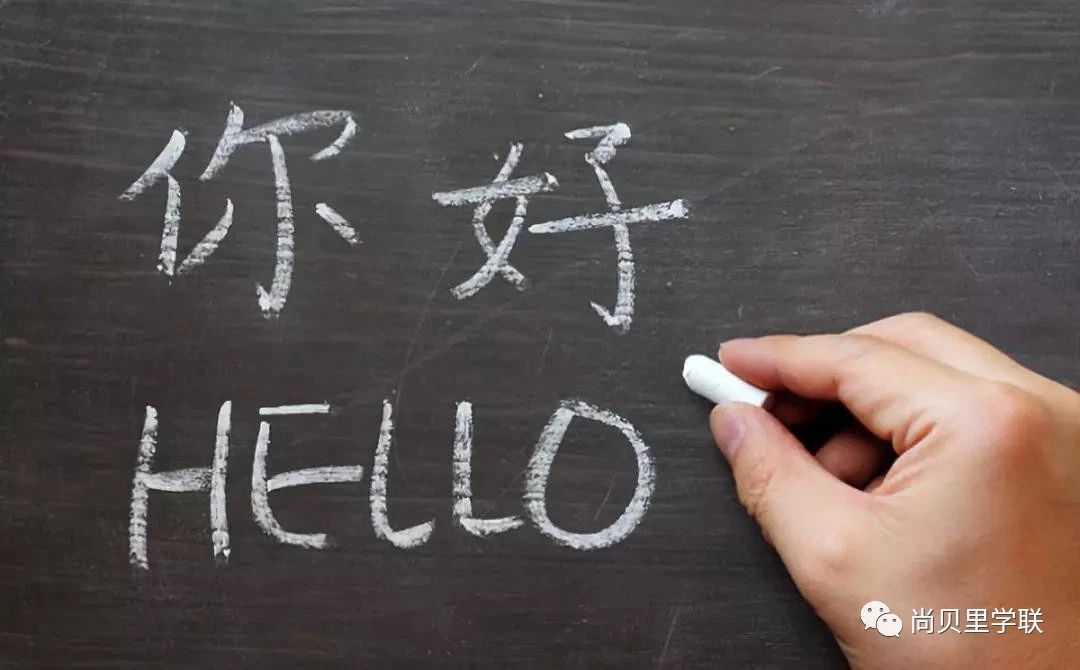 你好
HELLO
尚贝里学联